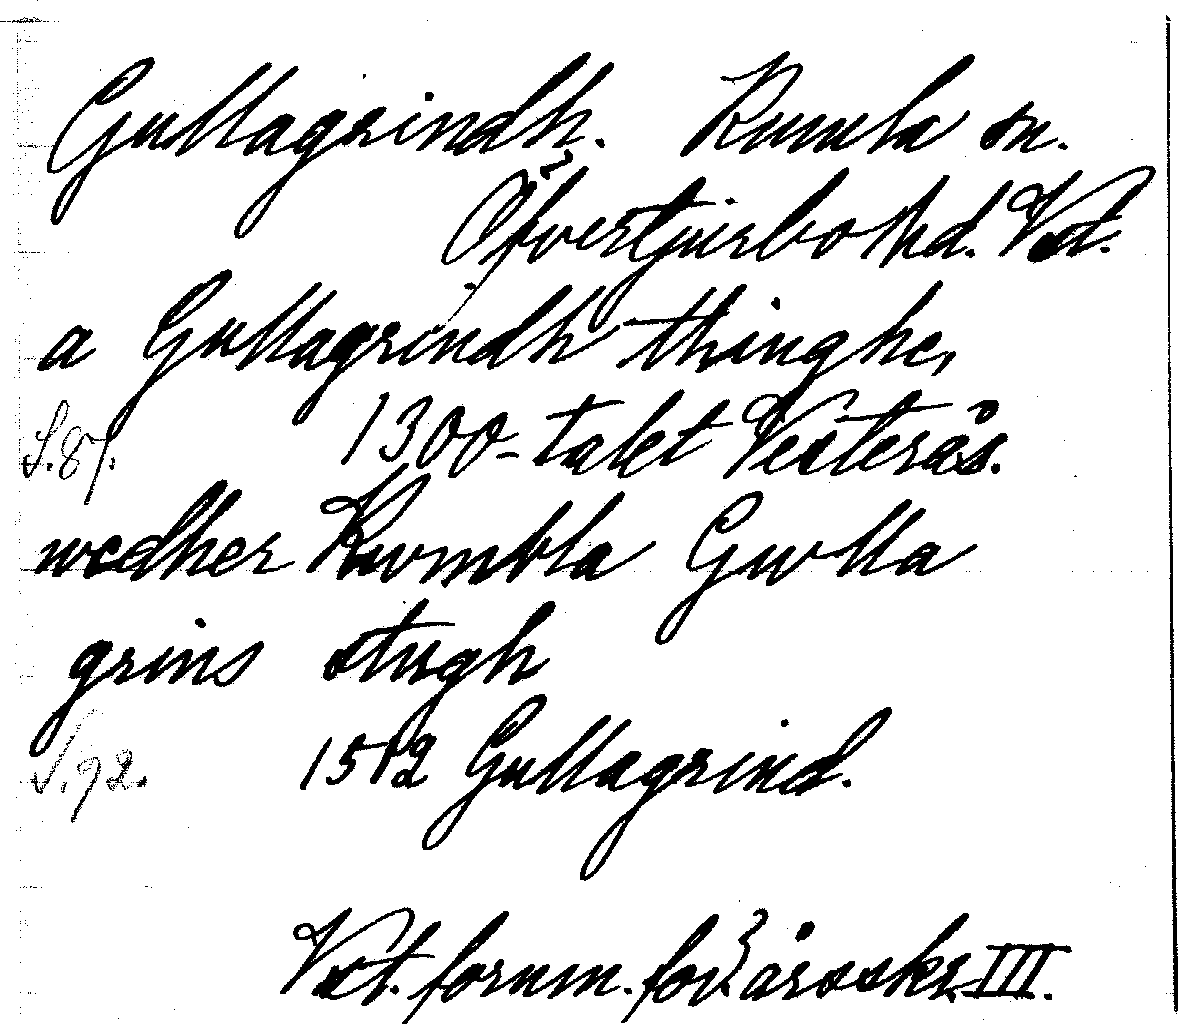 Gullagrindh. Kumla sn.
Öfvertjurbo hd. Vst.
a Gullagrindh thinghe,
S.87. 1300-talet Vesterås.
wedher Kwmbla Gwlla
grins stugh
S.92. 1512 Gullagrind.
Vst. fornm. för. årsskr. III.